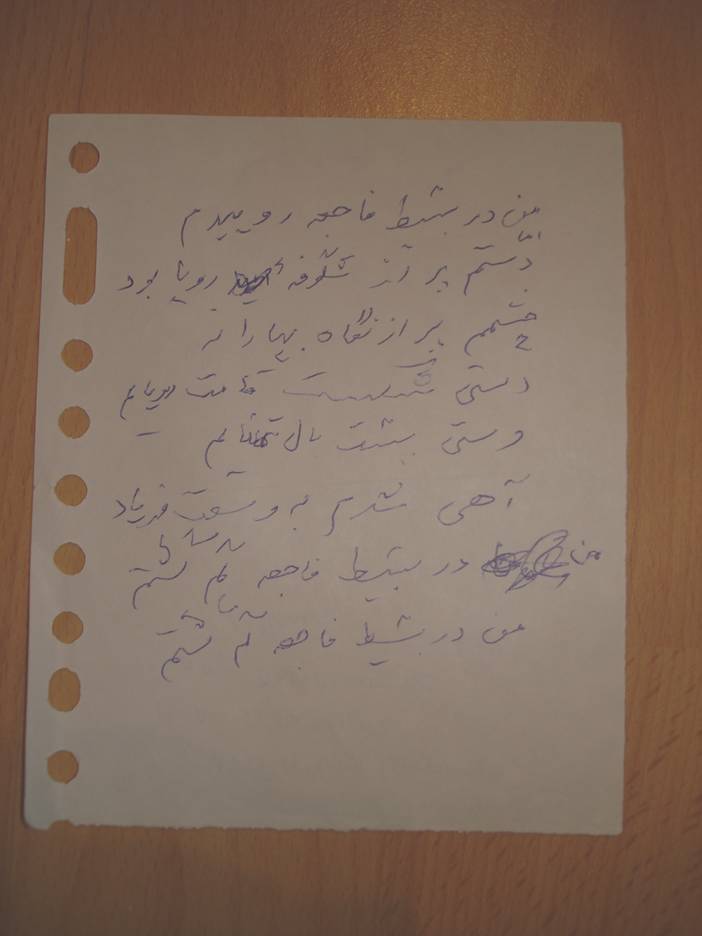 من در بسیط فاجعه روییدم
دستم پر از شکوفه رویا بود
چشمم پر از نگاه بهارانه
دستی شکست قامت رویایم
دستی ببست بال تمنایم
آهی شدم به وسعت فریاد
من در بسیط فاجعه گم گشتم
من در بسیط فاجعه گم گشتم